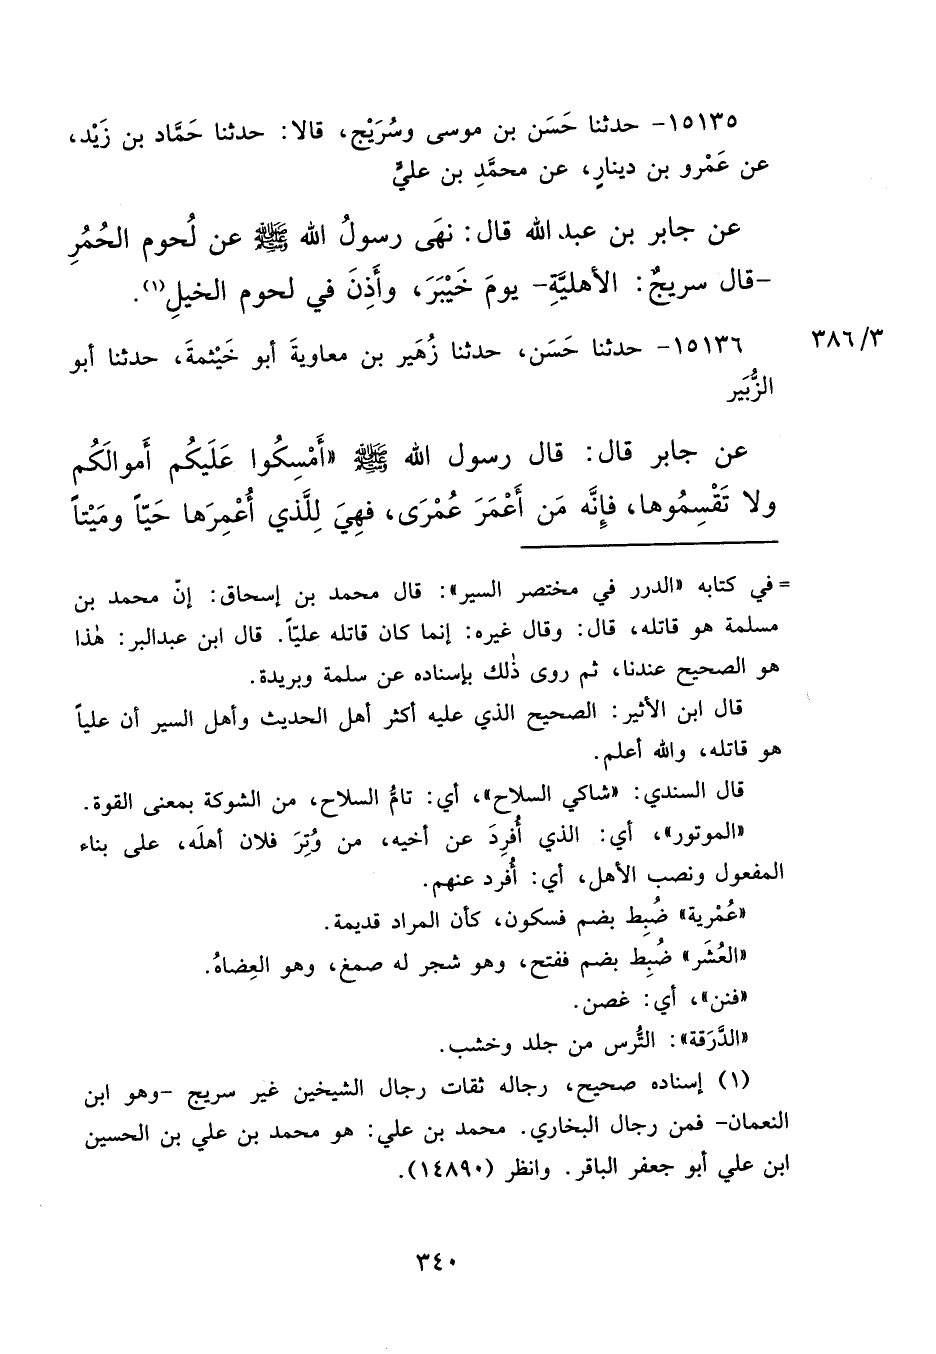 ١٥١٣٥- حدثنا حَسَن بن موسى وسُرَيْج، قالا: حدثنا حَمَّاد بن زَيْد،
عن عَمْرو بن دينارٍ، عن محمَّدِ بن عليٍّ
عن جابر بن عبد الله قال: نهَى رسولُ الله ﷺ عن لُحوم الحُمُرِ
-قال سريجٌ: الأهليَّةِ- يومَ خَيْبَرَ، وأَذِنَ في لحوم الخيلِ(١).
١٥١٣٦- حدثنا حَسَن، حدثنا زُهَير بن معاويةَ أبو خَيْثمةَ، حدثنا أبو
٣٨٦/٣
الزُّبَير
عن جابر قال: قال رسول الله ﷺ «أَمْسِكُوا عَلَيكُم أَموالَكُم
ولا تَقْسِمُوها، فإِنَّه مَن أَعْمَرَ عُمْرَى، فهِيَ لِلَّذي أُعْمِرَها حَيّاً ومَيْتاً
= في كتابه «الدرر في مختصر السير»: قال محمد بن إسحاق: إنّ محمد بن
مسلمة هو قاتله، قال: وقال غيره: إنما كان قاتله عليّاً. قال ابن عبدالبر: هٰذا
هو الصحيح عندنا، ثم روى ذٰلك بإسناده عن سلمة وبريدة.
قال ابن الأثير: الصحيح الذي عليه أكثر أهل الحديث وأهل السير أن علياً
هو قاتله، والله أعلم.
قال السندي: «شاكي السلاح»، أي: تامُّ السلاح، من الشوكة بمعنى القوة.
«الموتور»، أي: الذي أُفرِدَ عن أخيه، من وُتِرَ فلان أهلَه، على بناء
المفعول ونصب الأهل، أي: أُفرد عنهم.
«عُمْرية» ضُبِط بضم فسكون، كأن المراد قديمة.
«العُشَر» ضُبِط بضم ففتح، وهو شجر له صمغ، وهو العِضاهُ.
«فنن»، أي: غصن.
«الدَّرَقة»: التُّرس من جلد وخشب.
(١) إسناده صحيح، رجاله ثقات رجال الشيخين غير سريج -وهو ابن
النعمان- فمن رجال البخاري. محمد بن علي: هو محمد بن علي بن الحسين
ابن علي أبو جعفر الباقر. وانظر (١٤٨٩٠).
٣٤٠